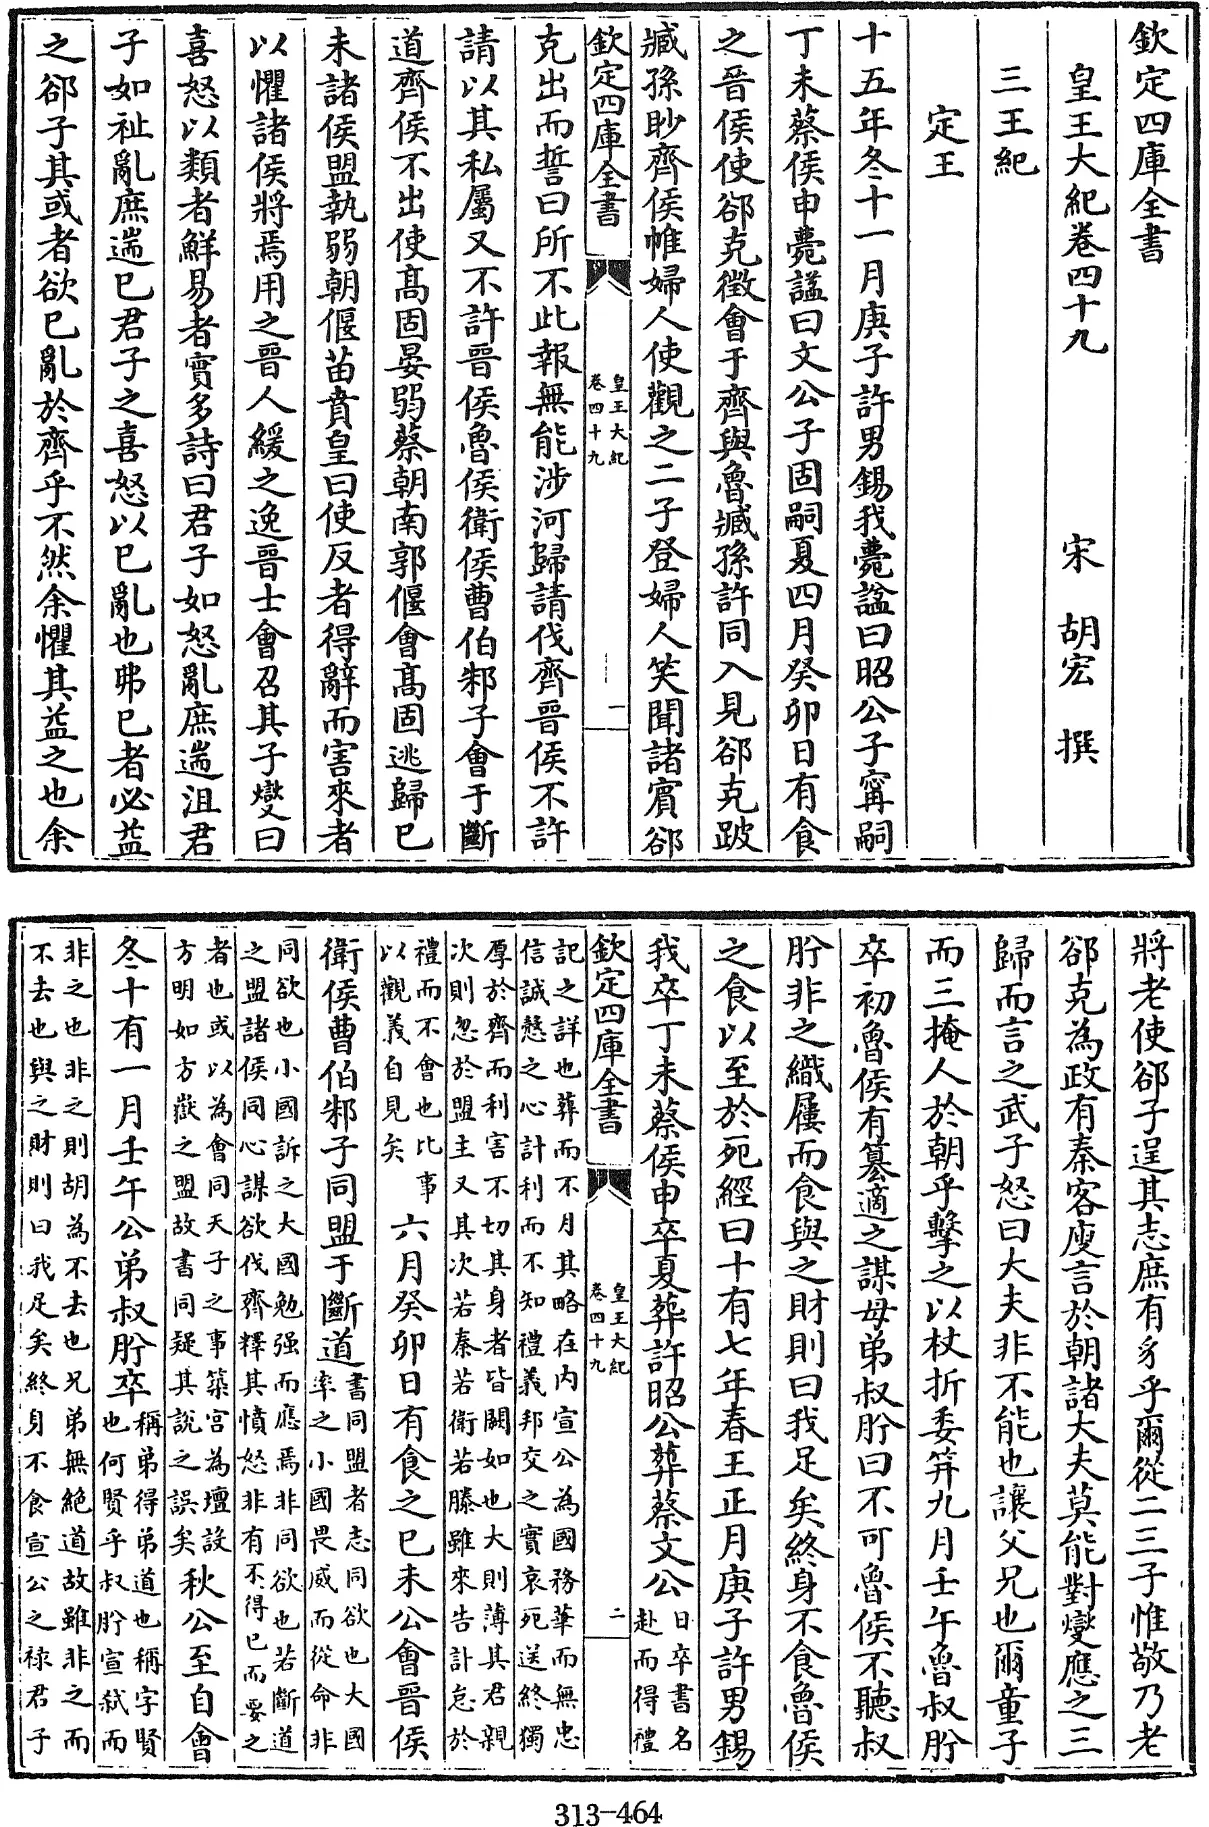 欽定四庫全書
皇王大紀卷四十九
宋 胡宏 撰
三王紀
定王
十五年冬十一月庚子許男錫我薨諡曰昭公子甯嗣
丁未蔡侯申薨諡曰文公子固嗣夏四月癸卯日有食
之晉侯使郤克徵會于齊與魯臧孫許同入見郤克跛
臧孫眇齊侯帷婦人使觀之二子登婦人笑聞諸賓郤
欽定四庫全書
皇王大紀
卷四十九
一
克出而誓曰所不此報無能涉河歸請伐齊晉侯不許
請以其私屬又不許晉侯魯侯衛侯曹伯邾子會于斷
道齊侯不出使高固晏弱蔡朝南郭偃會高固逃歸已
未諸侯盟執弱朝偃苗賁皇曰使反者得辭而害來者
以懼諸侯將焉用之晉人緩之逸晉士會召其子燮曰
喜怒以類者鮮易者實多詩曰君子如怒亂庶遄沮君
子如祉亂庶遄已君子之喜怒以已亂也弗已者必益
之郤子其或者欲已亂於齊乎不然余懼其益之也余
將老使郤子逞其志庶有豸乎爾從二三子惟敬乃老
郤克為政有秦客廋言於朝諸大夫莫能對燮應之三
歸而言之武子怒曰大夫非不能也讓父兄也爾童子
而三掩人於朝乎擊之以杖折委筓九月壬午魯叔肸
卒初魯侯有篡適之謀母弟叔肸曰不可魯侯不聽叔
肸非之織屨而食與之財則曰我足矣終身不食魯侯
之食以至於死經曰十有七年春王正月庚子許男錫
我卒丁未蔡侯申卒夏葬許昭公葬蔡文公日卒書名
赴而得禮
欽定四庫全書
皇王大紀
卷四十九
二
記之詳也葬而不月其略在內宣公為國務華而無忠
信誠慤之心計利而不知禮義邦交之實哀死送終獨
厚於齊而利害不切其身者皆闕如也大則薄其君親
次則忽於盟主又其次若秦若衛若滕雖來告訃怠於
禮而不會也比事
以觀義自見矣
六月癸卯日有食之已未公會晉侯
衛侯曹伯邾子同盟于斷道書同盟者志同欲也大國
率之小國畏威而從命非
同欲也小國訴之大國勉强而應焉非同欲也若斷道
之盟諸侯同心謀欲伐齊釋其憤怒非有不得已而要之
者也或以為會同天子之事築宮為壇設
方明如方嶽之盟故書同疑其說之誤矣
秋公至自會
冬十有一月壬午公弟叔肸卒稱弟得弟道也稱字賢
也何賢乎叔肸宣弒而
非之也非之則胡為不去也兄弟無絕道故雖非之而
不去也與之財則曰我足矣終身不食宣公之祿君子
313-464